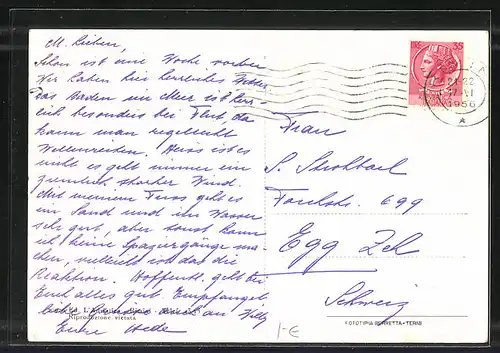 M. Lieben,
Schon ist eine Woche vorbei
Wir haben hier herrliches Wetter
Das Baden im Meer ist herr-
lich besonders bei Flut, da
kann man regelrecht
Wellenreiten. Heiss ist es
nicht es geht immer ein
ziemlich starker Wind.
Mit meinem Fuss geht es
im Sand und im Wasser
sehr gut, aber sonst kann
ich keine Spaziergänge ma-
chen, vielleicht ist das die
Reaktion. Hoffentl. geht es bei
Euch alles gut. Empfangt
auch an Willy
Eure Hede
Riproduzione vietata
35
21-22
VI
1956
Frau
S. Strohbach
Forchstr. 699
Egg Zch
Schweiz
1-€
FOTOTIPIA BERRETTA-TERNI